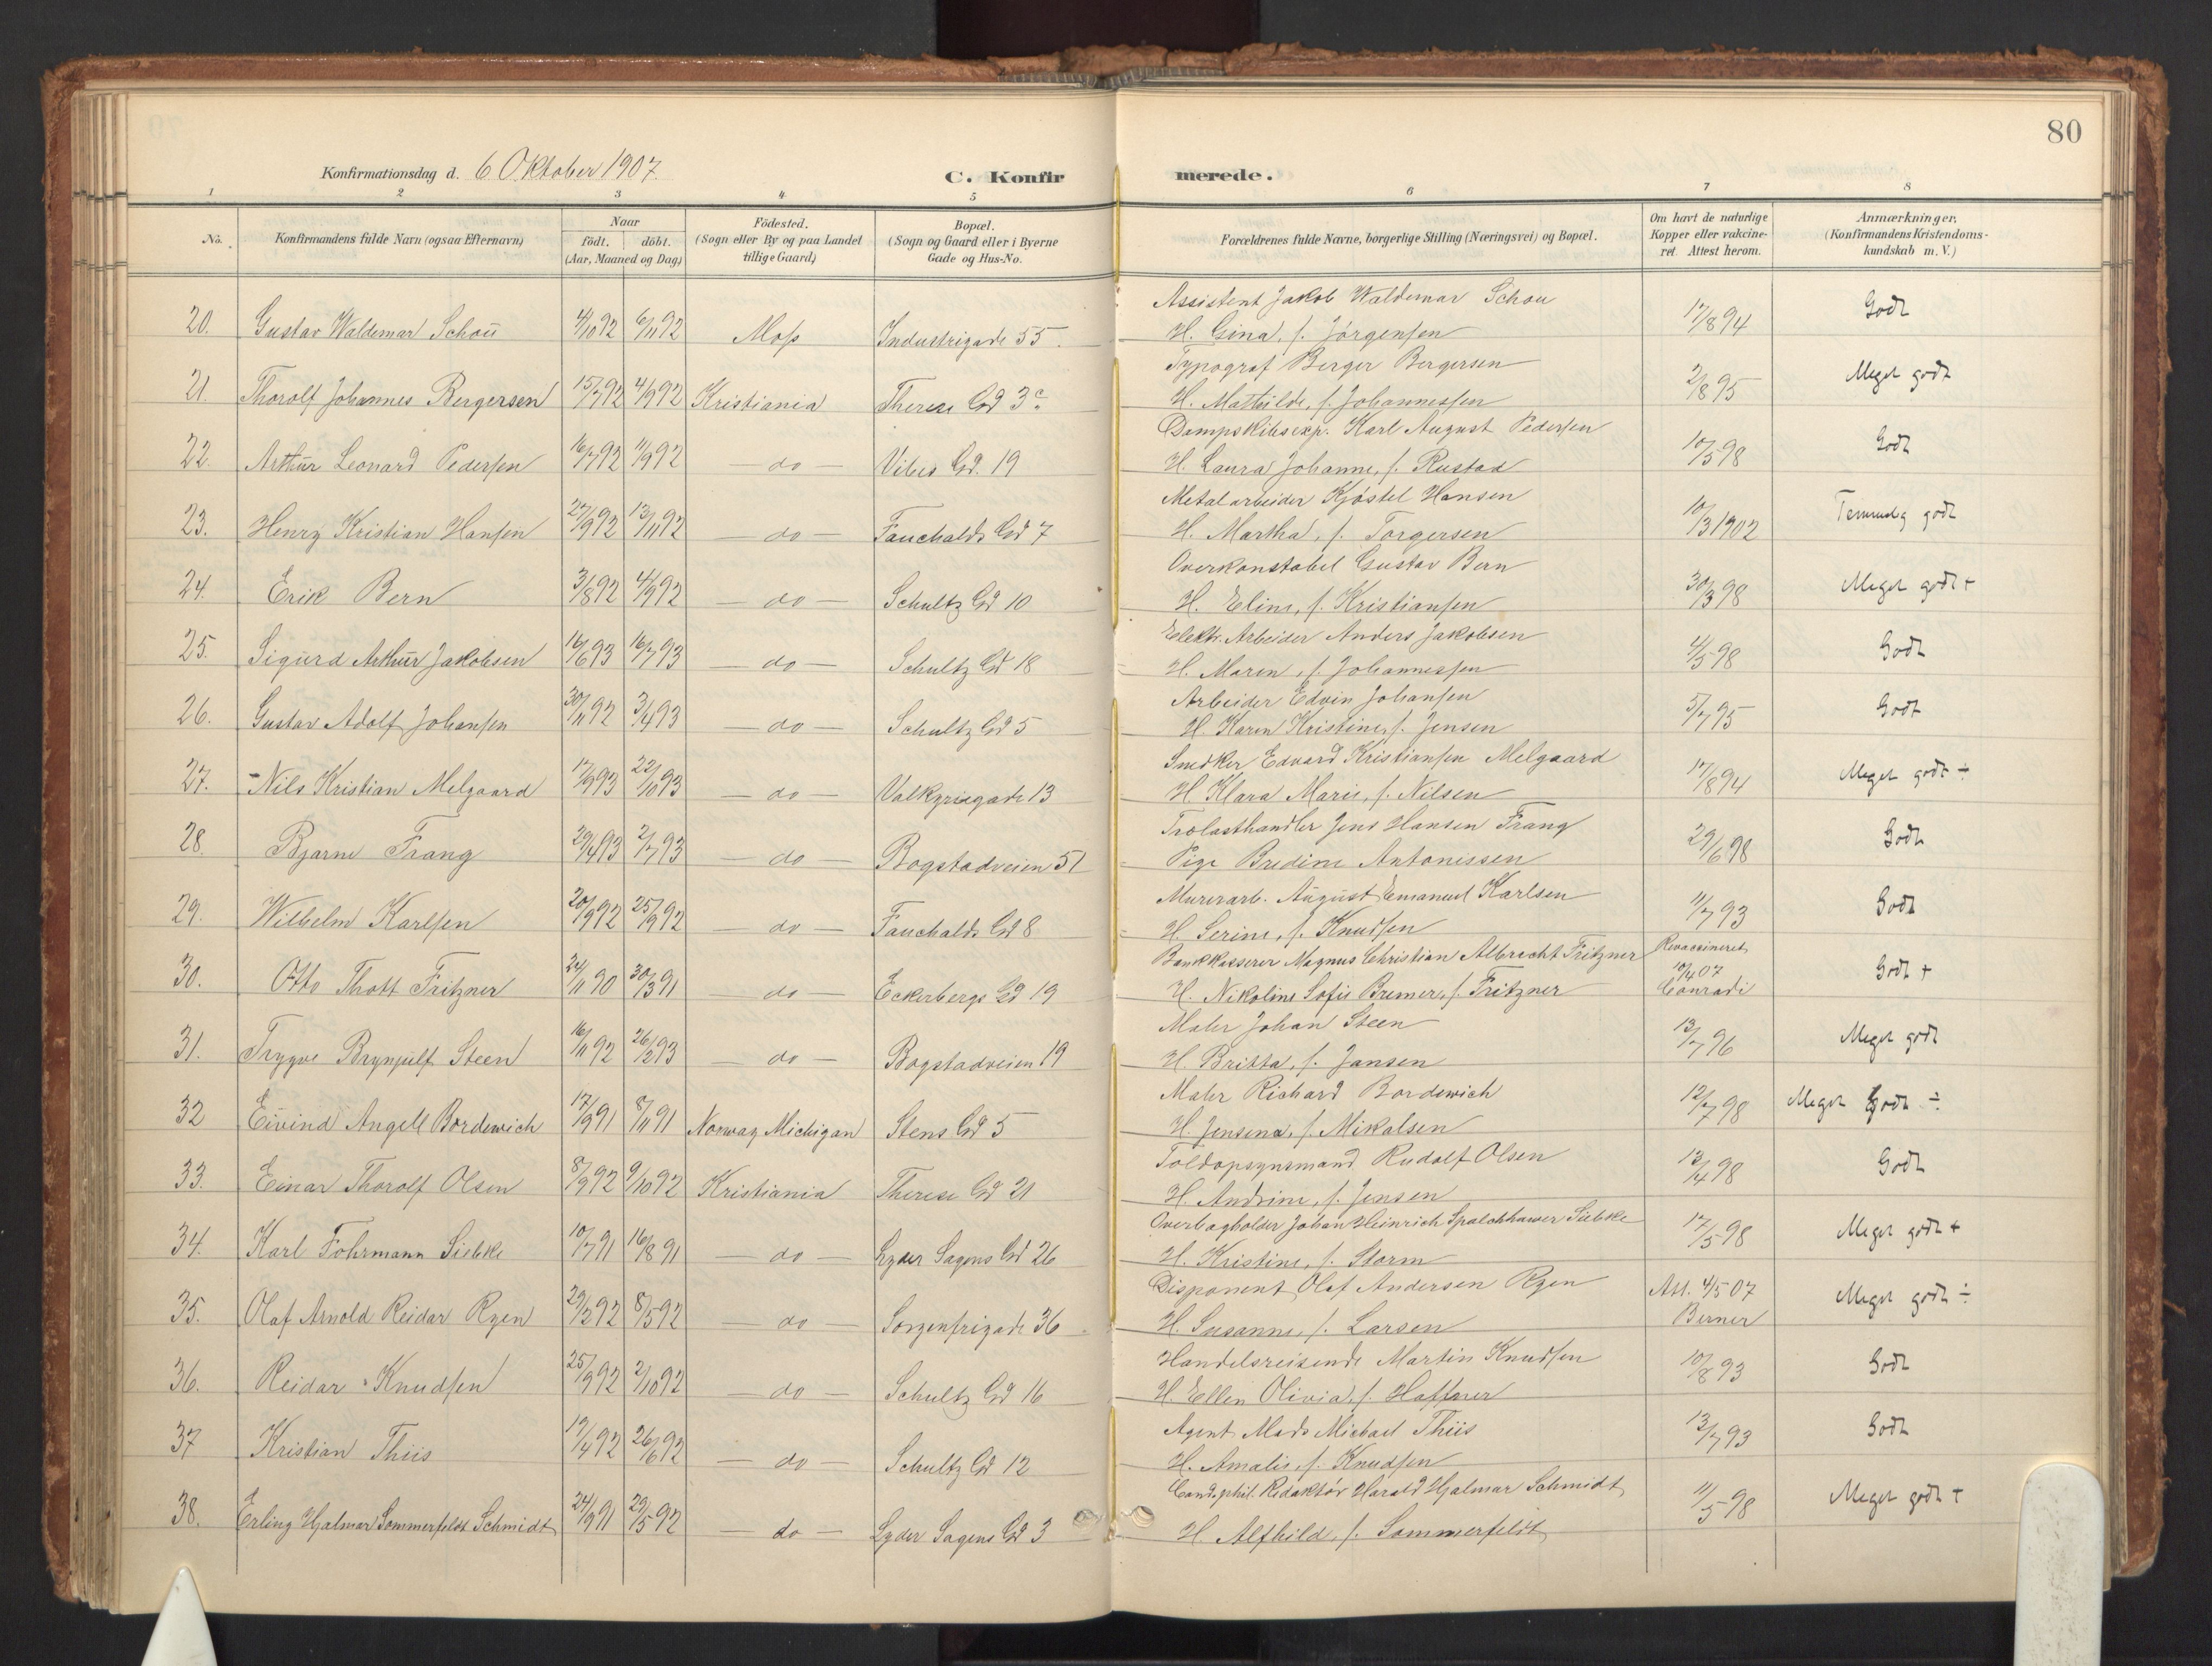 80
Konfirmationsdag d. 6 Oktober 1907.
C. Konfirmerede.
1 2 3 4 5 6 7 8
No. Konfirmandens fulde Navn (ogsaa Efternavn) Naar födt. döbt. (Aar, Maaned og Dag) Födested. (Sogn eller By og paa Landet tillige Gaard) Bopæl. (Sogn og Gaard eller i Byerne Gade og Hus-No. Forældrenes fulde Navne, borgerlige Stilling (Næringsvei) og Bopæl. Om havt de naturlige Kopper eller vakcineret. Attest herom. Anmærkninger. (Konfirmandens Kristendomskundskab m. V.)
20. Gustav Waldemar Schou 4/10 92 6/11 92 Moss Industrigade 55. Assistent Jakob Waldemar Schou 17/8 94 Godt
H. Gina, f. Jörgensen
21. Thorolf Johannes Bergersen 15/7 92 4/9 92 Kristiania Therese Gd 3c. Typograf Berger Bergersen 2/8 95 Meget godt
H. Mathilde, f. Johannessen
22. Arthur Leonard Pedersen 16/7 92 11/9 92 do Vibes Gd. 19 Dampskibsexp. Karl August Pedersen 10/5 98 Godt
H. Laura Johanne, f. Rustad
23. Henry Kristian Hansen 27/9 92 13/11 92 do Fauchalds Gd 7 Metalarbeider Kjöstel Hansen 10/3 1902 Temmelig godt
H. Martha, f. Torgersen
24. Erik Bern 3/8 92 4/9 92 do Schultz Gd 10 Overkonstabel Gustav Bern 30/3 98 Meget godt +
H. Eline, f. Kristiansen
25. Sigurd Arthur Jakobsen 16/6 93 16/7 93 do Schultz Gd 18 Elektr. Arbeider Anders Jakobsen 4/5 98 Godt
H. Maren, f. Johannessen
26. Gustav Adolf Johansen 30/11 92 3/4 93 do Schultz Gd 5 Arbeider Edvin Johansen 5/7 95 Godt
H. Karen Kristine, f. Jensen
27. Nils Kristian Melgaard 17/9 93 22/10 93 do Valkyriegade 13 Snedker Edvard Kristiansen Melgaard 17/8 94 Meget godt ÷
H. Klara Marie, f. Nilsen
28. Bjarne Frang 29/4 93 2/7 93 do Bogstadveien 51 Trælasthandler Jens Hansen Frang 29/6 98 Godt
Pige Bredine Antonissen
29. Wilhelm Karlsen 20/9 92 25/9 92 do Fauchalds Gd 8 Murerarb. August Emanuel Karlsen 11/7 93 Godt
H. Serine, f. Knudsen
30. Otto Thott Fritzner 24/11 90 30/3 91 do Eckerbergs Gd 19 Bankkasserer Magnus Christian Albrecht Fritzner Revaccineret 10/4 07 Conradi Godt +
H. Nikoline Sofie Bremer, f. Fritzner
31. Trygve Brynjulf Steen 16/11 92 26/2 93 do Bogstadveien 19 Maler Johan Steen 13/7 96 Meget godt
H. Britta, f. Jansen
32 Eivind Angell Bordewich 17/9 91 8/11 91 Norway Michigan Stens Gd 5 Maler Richard Bordewich 12/7 98 Meget Godt ÷
H. Jensena, f. Mikalsen
33. Einar Thorolf Olsen 8/9 92 9/10 92 Kristiania Therese Gd 21 Toldopsynsmand Rudolf Olsen 13/4 98 Godt
H. Andrine, f. Jensen
34. Karl Fohrmann Siebke 10/7 91 16/8 91 do Lyder Sagens Gd 26 Overbogholder Johan Heinrich Spalchhawer Siebke 17/5 98 Meget godt +
H. Kristine, f. Storm
35. Olaf Arnold Reidar Ryen 29/2 92 8/5 92 do Sorgenfrigade 36 Disponent Olaf Andersen Ryen Att. 4/5 07 Berner Meget godt ÷
H. Susanne, f. Larsen
36. Reidar Knudsen 25/9 92 2/10 92 do Schultz Gd 16 Handelsreisende Martin Knudsen 10/8 93 Godt
H. Ellen Olivia, f. Haffner
37 Kristian Thiis 19/4 92 26/6 92 do Schultz Gd 12 Agent Mads Michael Thiis 13/7 93 Godt
H. Amalie, f. Knudsen
38. Erling Hjalmar Sommerfeldt Schmidt 24/9 91 29/5 92 do Lyder Sagens Gd 3 Cand. phil. Redaktör Harald Hjalmar Schmidt 11/5 98 Meget godt +
H. Alfhild, f. Sommerfeldt